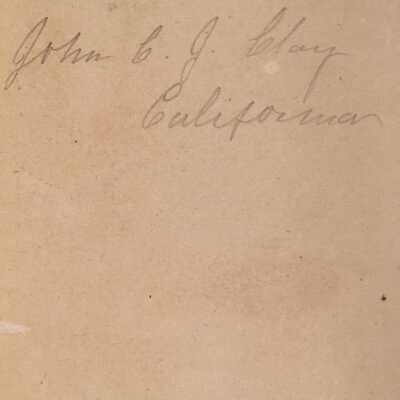 John C. J. Clay
California